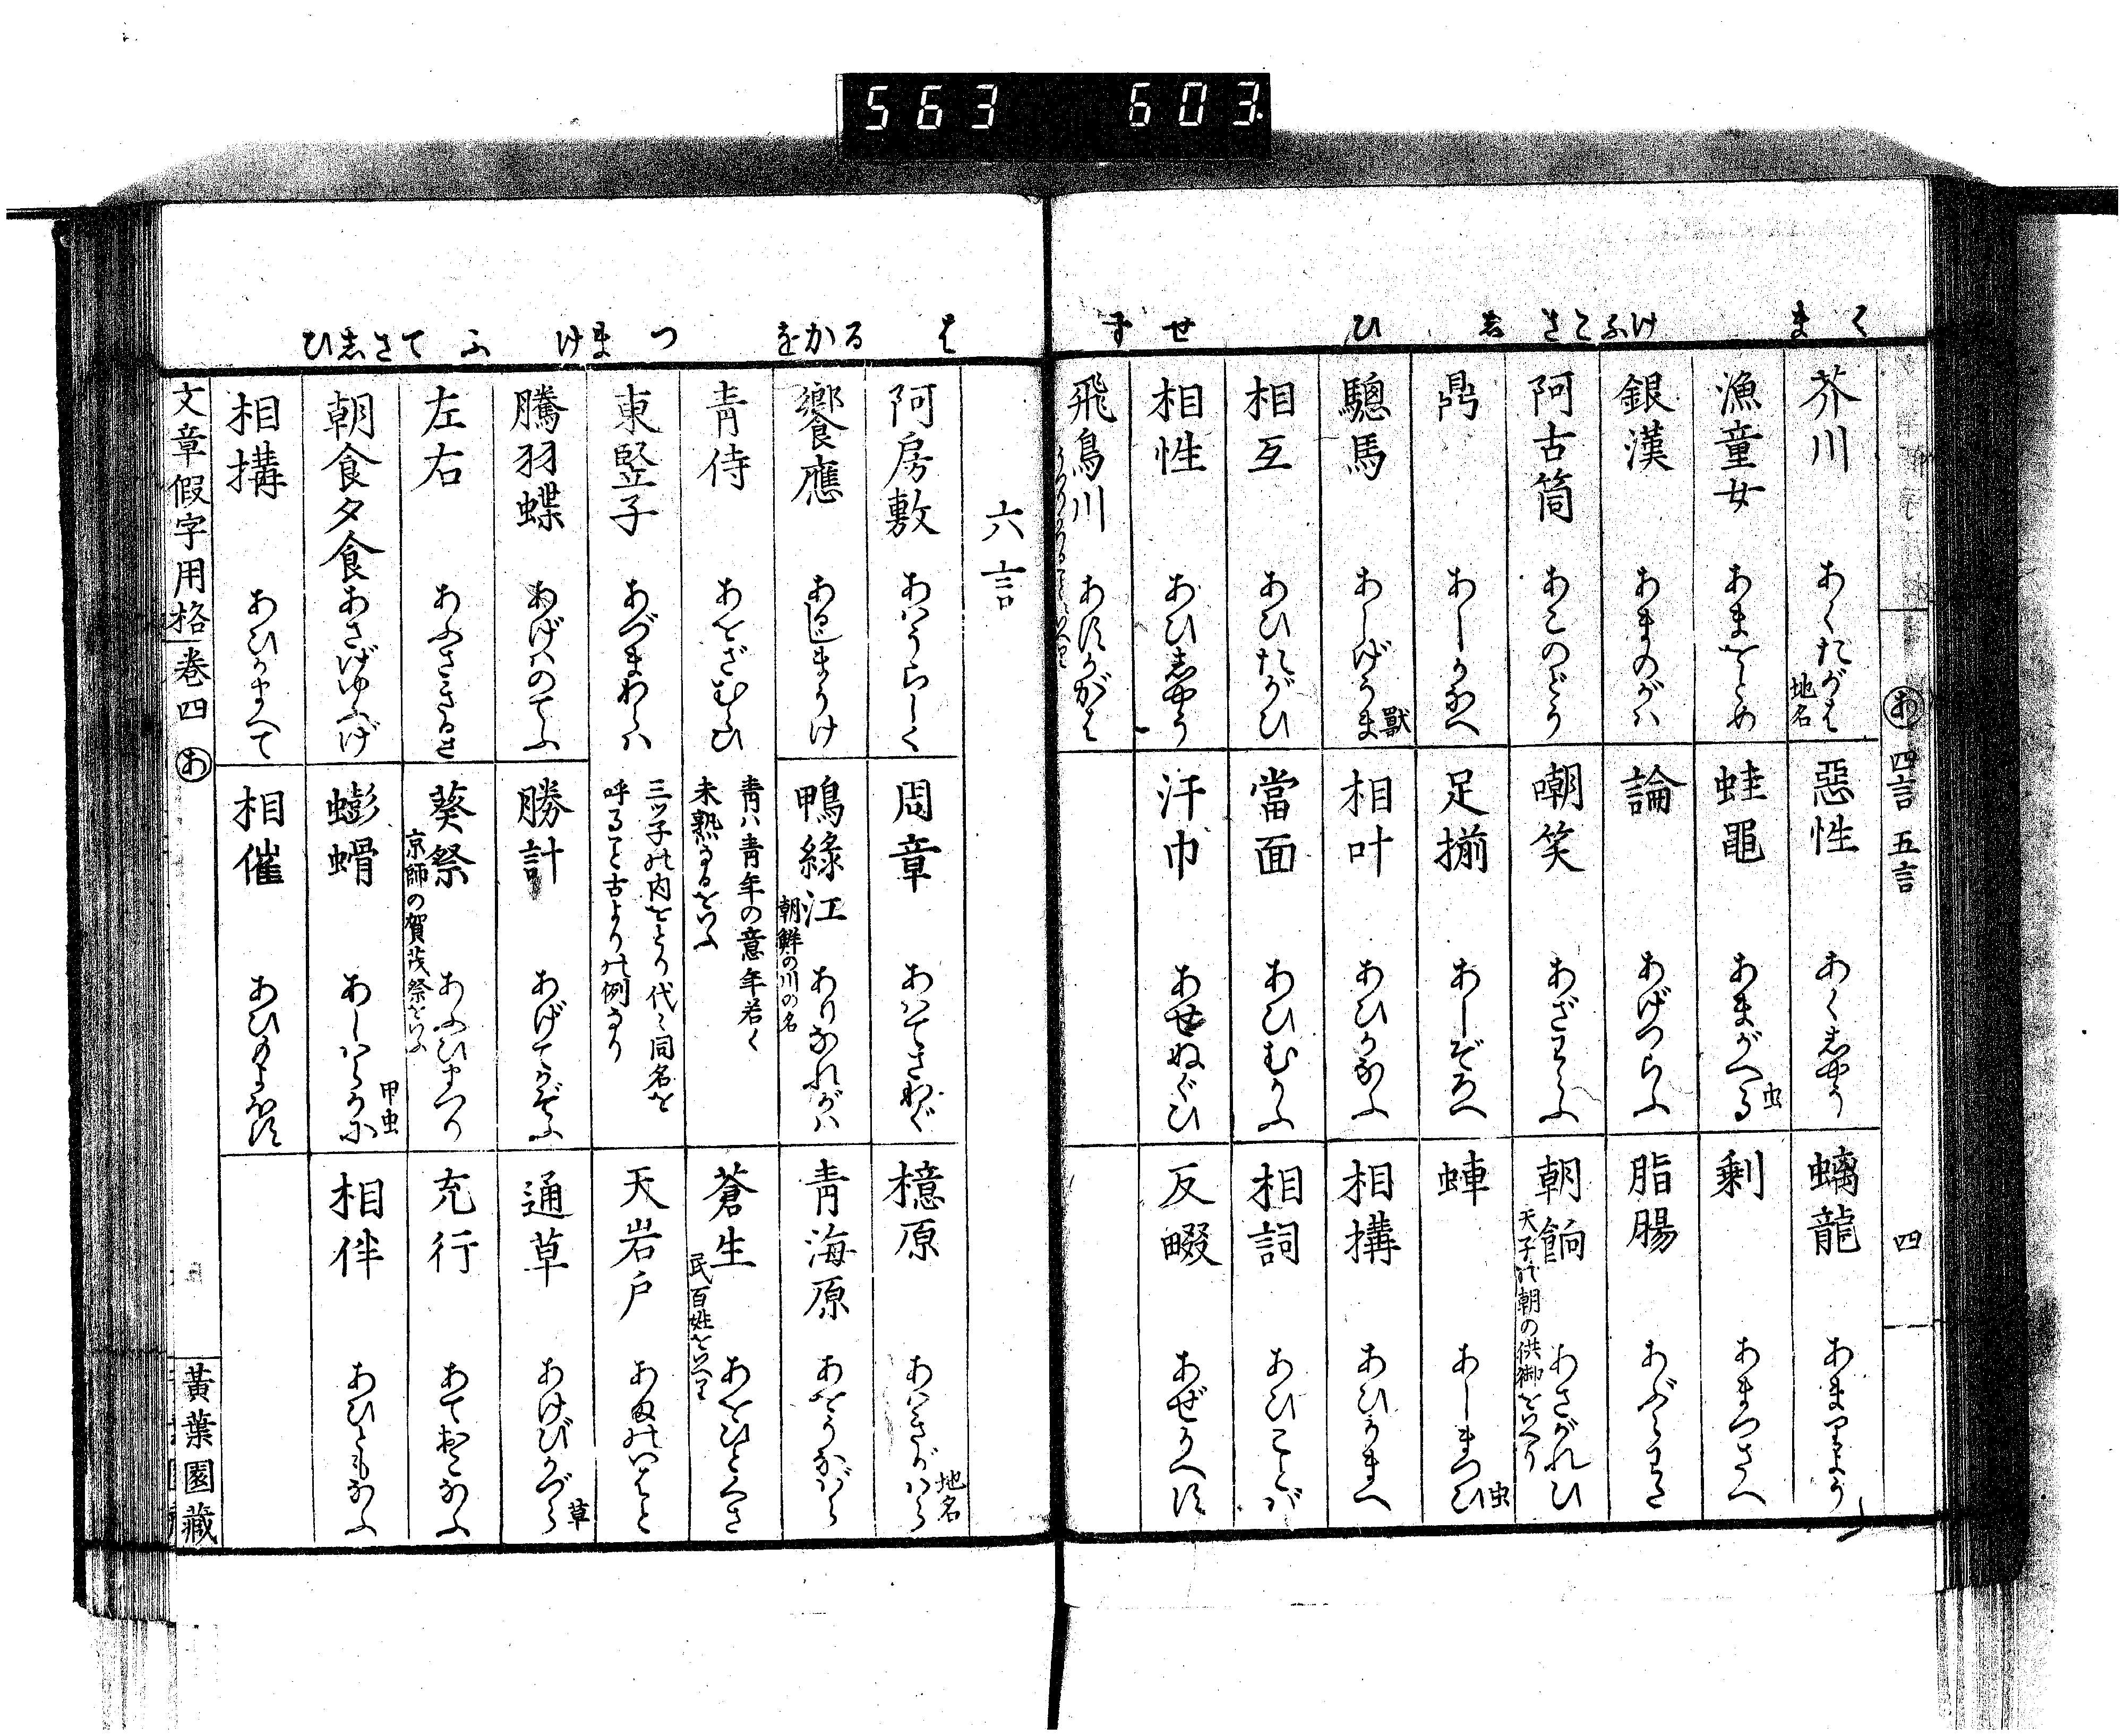 563 603.
くまけふこさしひせす
あ 四言 五言 四
芥川 あくたがは 地名
惡性 あくしやう
螭龍 あまりよう
漁童女 あまをとめ
蛙黽 あまがへる 虫
剰 あまつさへ
銀漢 あまのがハ
論 あげつらふ
脂膓 あぶらわた
阿古筒 あこのどう
嘲笑 あざわらふ
朝餉 あさがれひ
天子の朝の供御をいへり
鼎 あしかなへ
足揃 あしぞろへ
蛼 あしまつひ 虫
驄馬 あしげうま 獸
相叶 あひかなふ
相搆 あひかまへ
相互 あひたがひ
當面 あひむかふ
相詞 あひことば
相性 あひしやう
汗巾 あせぬぐひ
反畷 あぜかへす
飛鳥川 あすかがは
六言
はるかをつまけふてさしひ
阿房敷 あハうらしく
周章 あハてさわぐ
檍原 あハきがハら 地名
饗應 あるじまうけ
鴨綠江 ありなれがハ
朝鮮の川の名
青海原 あをうなばら
青侍 あをざむらひ
青ハ青年の意年若く
未熟なるをいふ
蒼生 あをひとくさ
民百姓をいへり
東竪子 あづまわらハ
三ツ子の内をとり代〻同名を
呼ること古よりの例なり
天岩戸 あまのいはと
騰羽蝶 あげハのてふ
勝計 あげてかぞふ
通草 あけびかづら 草
左右 あふさきるさ
葵祭 あふひまつり
京師の賀茂祭をいふ
充行 あておこなふ
朝食夕食 あさげゆふげ
蟛螖 あしハらかに 甲虫
相伴 あひともなふ
相搆 あひかまへて
相催 あひもよほす
文章假字用格 卷四 あ
黄葉園藏